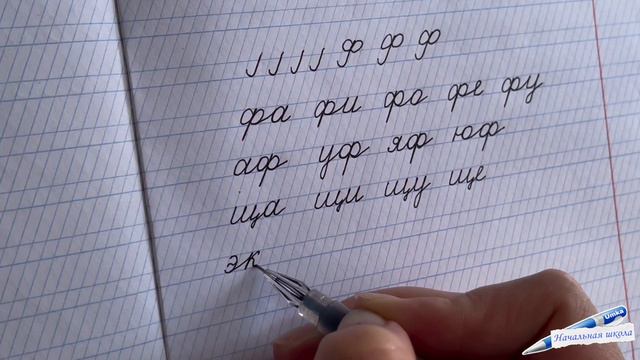 ɹ ɹ ɹ ɹ ф ф ф
фа фи фо фе фу
аф уф яф юф
ща щи щу ще
эк
Umka
Начальная школа